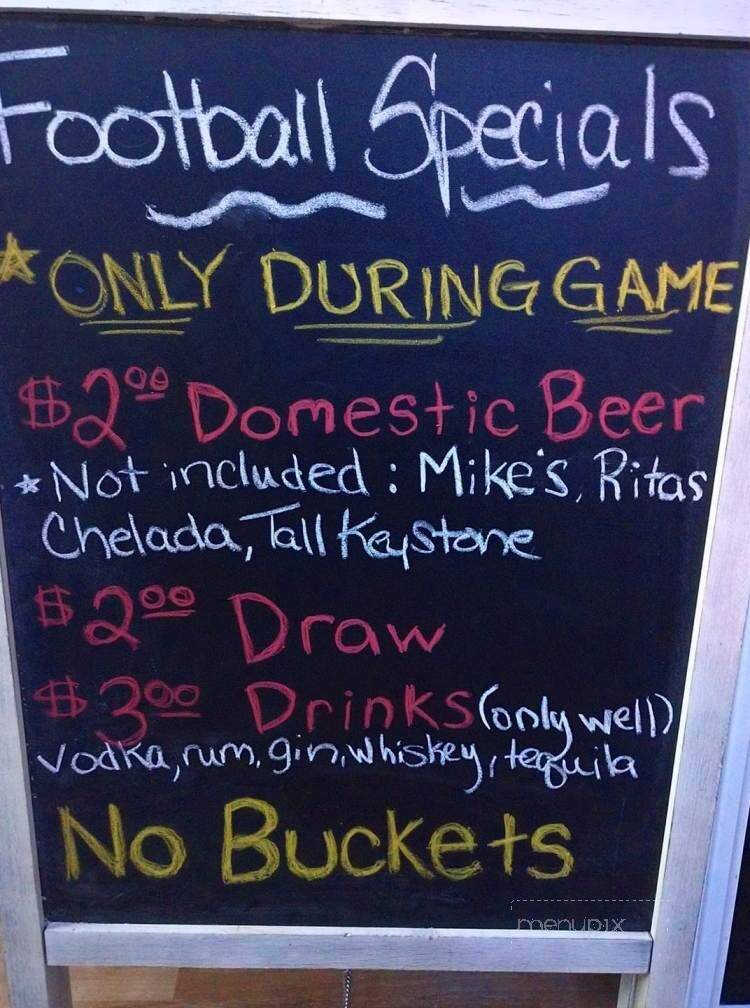 Football Specials
*ONLY DURING GAME
$2.00 Domestic Beer
*Not included: Mike's, Ritas
Chelada, Tall Keystone
$2.00 Draw
$3.00 Drinks (only well)
vodka, rum, gin, whiskey, tequila
No Buckets
menupix